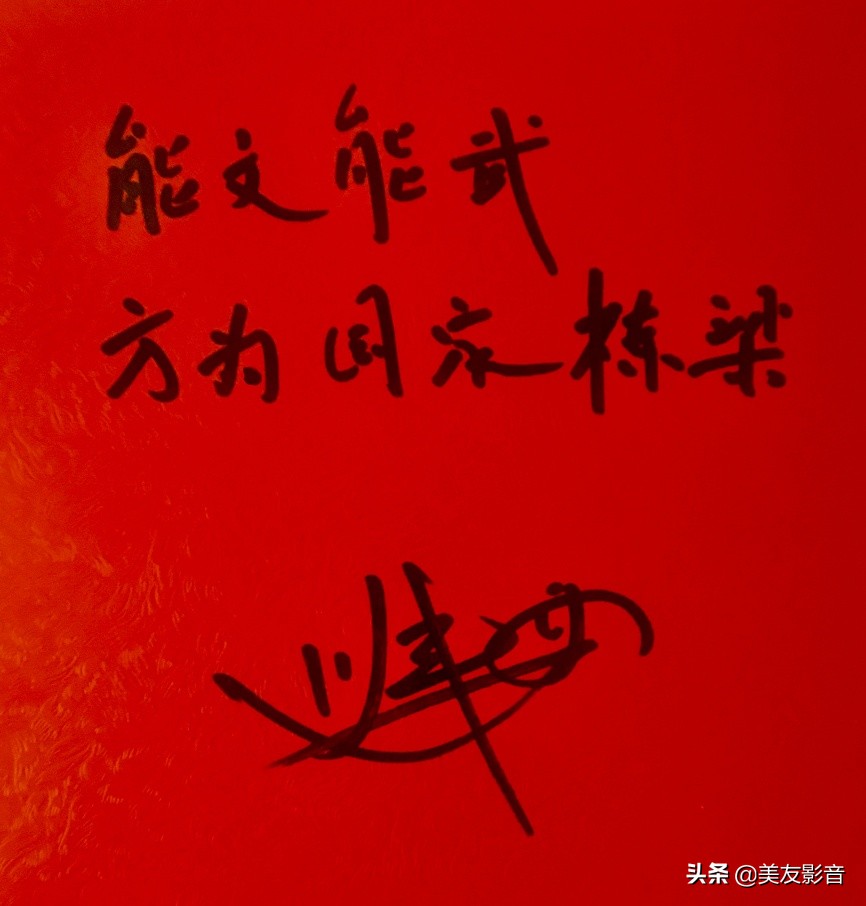 能文能武
方为国家栋梁
头条 @美友影音